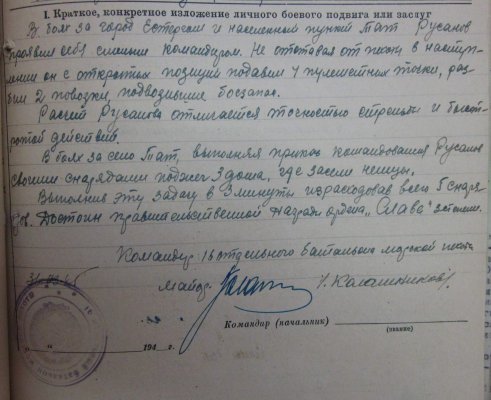 I. Краткое, конкретное изложение личного боевого подвига или заслуг
В боях за город Естергом и населенный пункт Тат Русанов
проявил себя смелым командиром. Не отставая от пехоты в наступ-
лении он с открытых позиций подавил 4 пулеметных точки, раз-
бил 2 повозки подвозившие боезапас.
Расчет Русанова отличается точностью стрельбы и быст-
ротой действий.
В боях за село Тат, выполняя приказ командования Русанов
своими снарядами поджег 3 дома, где засели немцы.
Выполнив эту задачу в 3 минуты израсходовав всего 5 снаря-
дов. Достоин правительственной награды ордена „Слава"
Командир 16 отдельного батальона морской пехоты
майор /Калашников/.
Командир (начальник)
(звание)
„ “ 194 г.